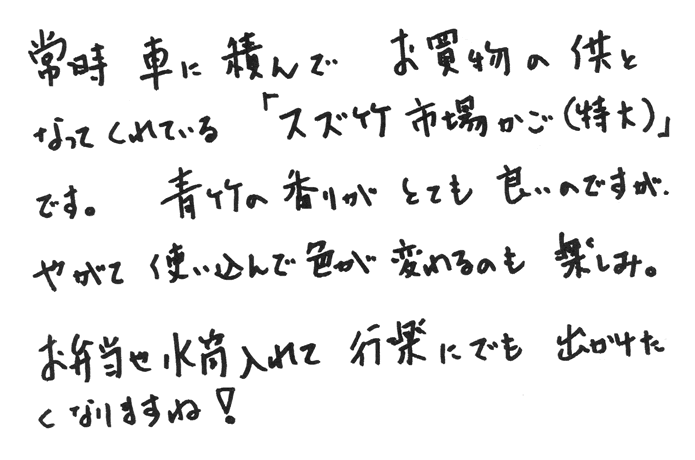 常時 車に 積んで お買物の 供と
なってくれている 「スズ竹 市場かご(特大)」
です。 青竹の 香りが とても 良いのですが、
やがて 使い込んで 色が 変わるのも 楽しみ。
お弁当や 水筒 入れて 行楽にでも 出かけた
くなりますね!